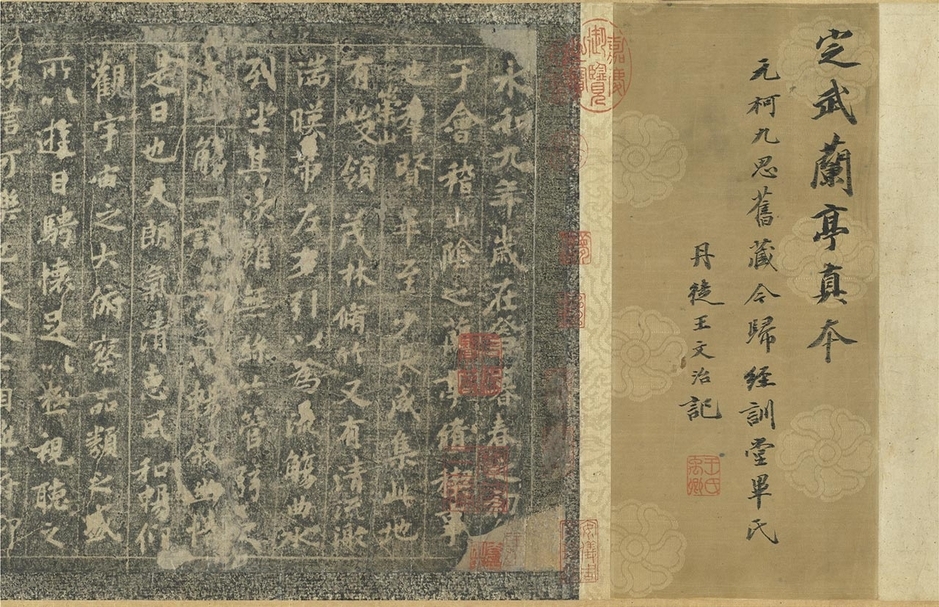 定武蘭亭真本
元柯九思舊藏今歸經訓堂畢氏
丹徒王文治記
王氏禹卿
嘉慶御覽之寶
永和九年歲在癸丑暮春之初
于會稽山陰之蘭亭脩禊事
也羣賢畢至少長咸集此地
有崇山峻領茂林脩竹又有清流激
湍暎帶左右引以為流觴曲水
列坐其次雖無絲竹管弦之
盛一觴一詠亦足以暢敘幽情
是日也天朗氣清惠風和暢仰
觀宇宙之大俯察品類之盛
所以遊目騁懷足以極視聽之
娛信可樂也夫人之相與俯仰